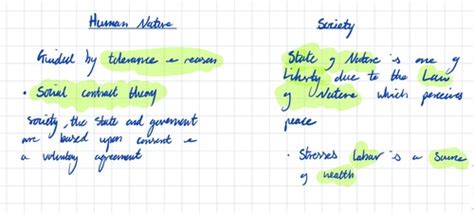 Human Nature
Guided by tolerance & reason
• Social contract theory
Society, the state and government
are based upon consent &
a voluntary agreement
Society
State of Nature is one of
Liberty due to the Law
of Nature which perceives
peace
• Stresses labour is a source
of wealth